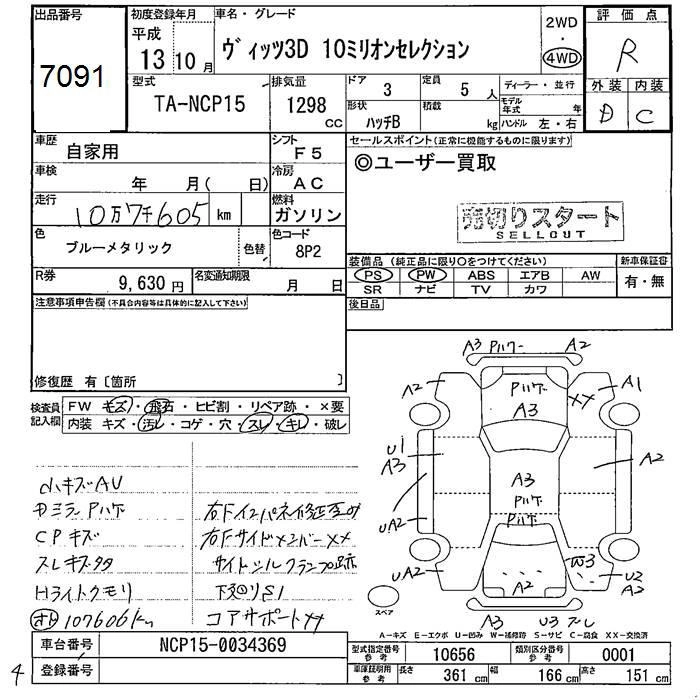 出品番号
7091
初度登録年月
平成
13 10 月
車名・グレード
ヴィッツ3D 10ミリオンセレクション
2WD
・
4WD
評価点
R
外装 内装
D C
型式
TA-NCP15
排気量
1298
CC
ドア
3
定員
5 人
ディーラー・並行
形状
ハッチB
積載
kg
モデル年式 年
ハンドル 左・右
車歴
自家用
シフト
F5
車検
年 月( 日)
冷房
AC
走行
10万7千605 km
燃料
ガソリン
色
ブルーメタリック
色替
色コード
8P2
R券
9,630 円
名変通知期限
月 日
セールスポイント(正常に機能するものに限ります)
◎ユーザー買取
売切りスタート
SELLOUT
装備品 (純正品に限り○をつけてください)
新車保証書
PS PW ABS エアB AW
SR ナビ TV カワ
有・無
後日品
注意事項申告欄(不具合内容等は具体的に記入して下さい)
修復歴 有〔箇所 〕
検査員記入欄
FW キズ・飛石・ヒビ割・リペア跡・×要
内装 キズ・汚レ・コゲ・穴・スレ・キレ・破レ
小キズAU
Dミラーハゲ
CPキズ
スレキズタタ
Hライトクモリ
メト 107606km
右Fインパネ修正有
右FサイドメンバーXX
サイドシルクランプ跡
下回りS1
コアサポートXX
A3 Pハゲ A2
A2
Pハゲ
A3
XX
A1
U1
A3
A3
Pハゲ
Pハゲ
A2
UA2
UA2
A2
W3
U2
A2
スペア
A3
U3 スレ
A-キズ E-エクボ U-凹み W-補修跡 S-サビ C-腐食 XX-交換済
車台番号
NCP15-0034369
登録番号
4
型式指定番号 参考
10656
類別区分番号 参考
0001
車庫証明用 参考
長さ 361 cm
幅 166 cm
高さ 151 cm